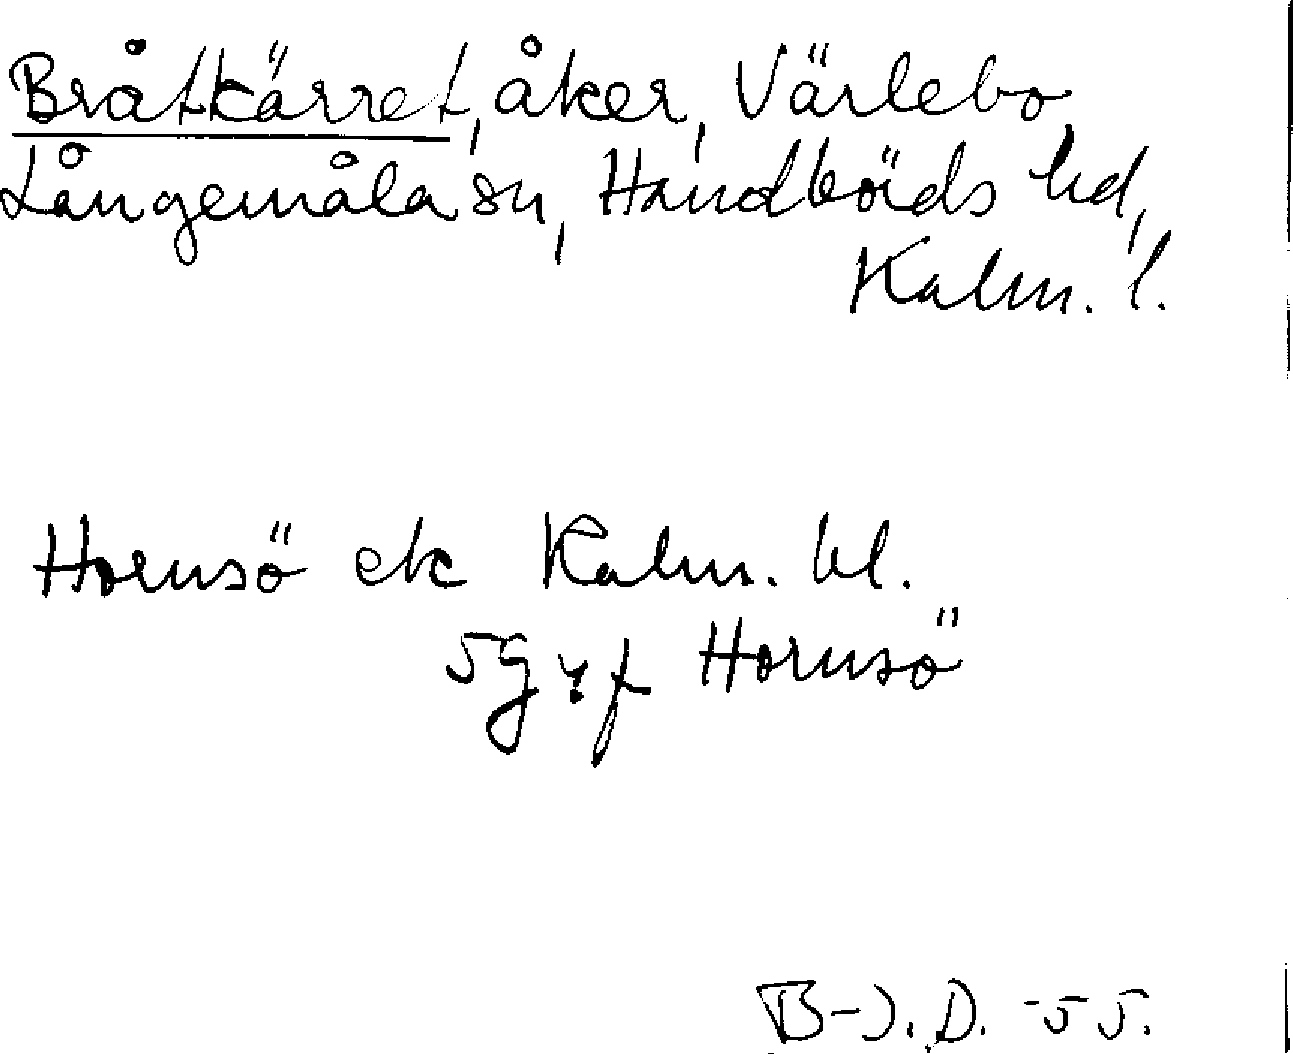 Bråtkärret, åker, Värlebo,
Långemåla sn, Handbörds hd,
Kalm. l.
Hornsö ek Kalm. bl.
5g Hornsö
B-J. D. -55.